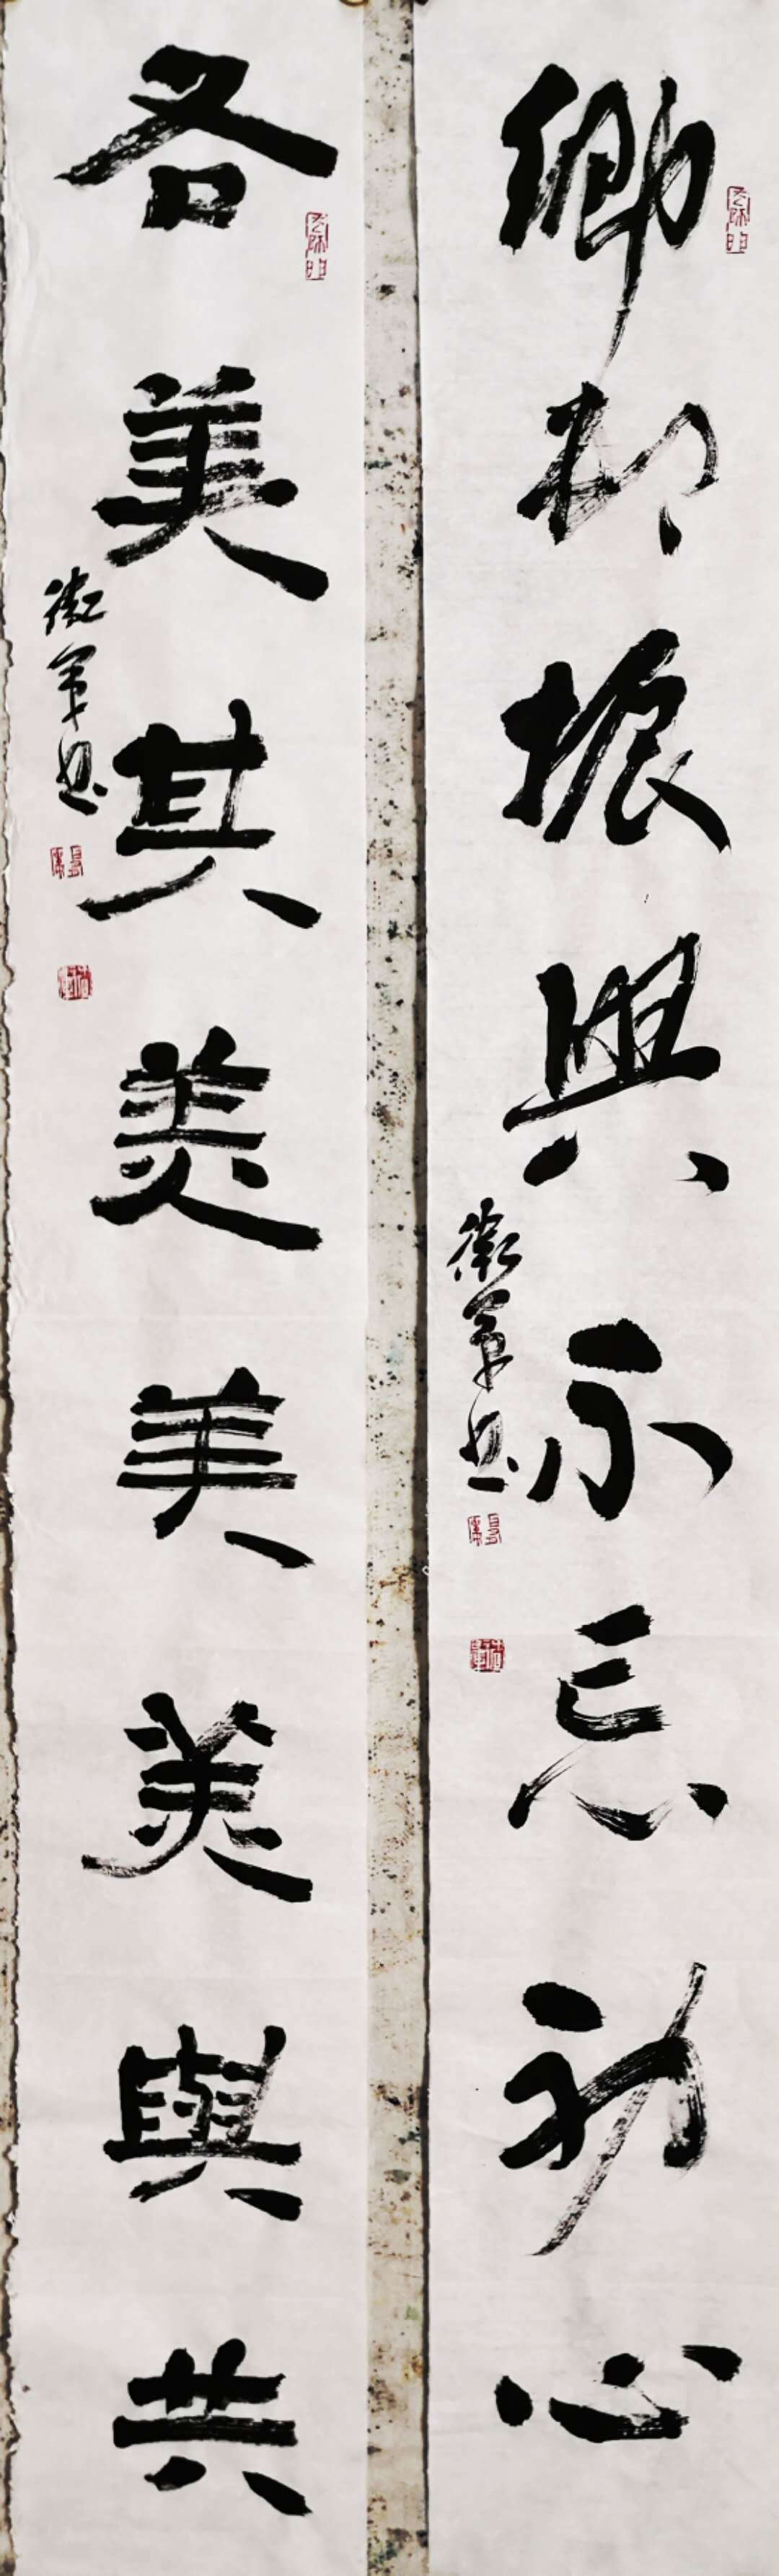 鄉村振興不忘初心
衛軍書
各美其美美美與共
衛軍書